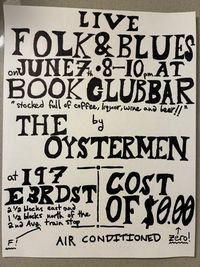 LIVE
FOLK & BLUES
on JUNE 7th · 8-10 pm AT
BOOK CLUB BAR
"stocked full of coffee, liquor, wine and beer!!"
by
THE
OYSTERMEN
at 197
E 3RD ST
2 1/2 blocks east and
1 1/2 blocks north of the
2nd Ave train stop
COST
OF $0.00
F↑
AIR CONDITIONED
zero!